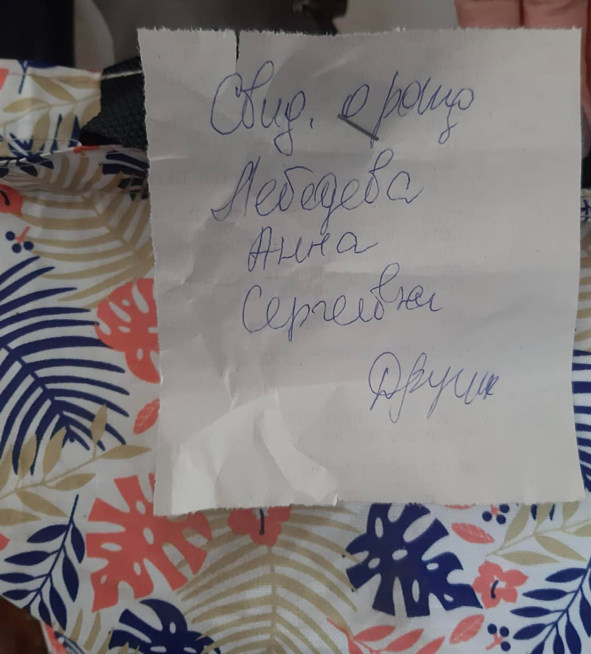 Свид. о рожд
Лебедева
Анна
Сергеевна